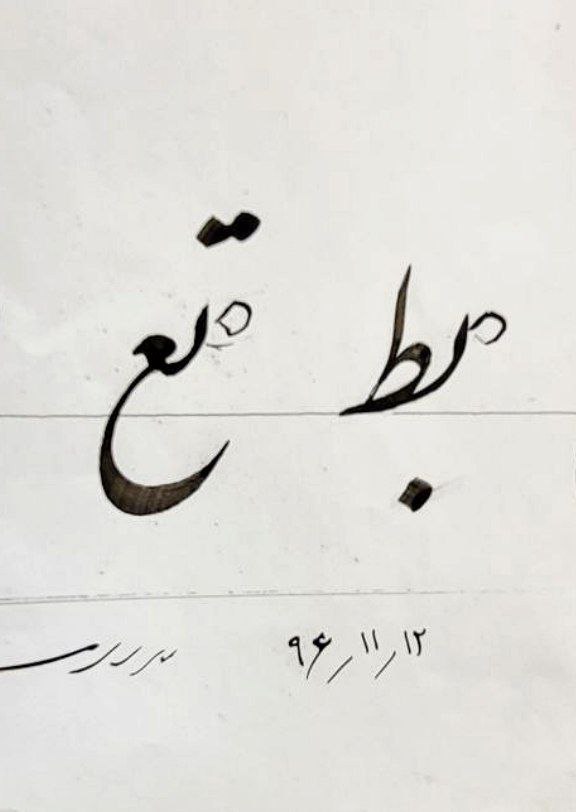 بط تع
۹۶/۱۱/۱۲